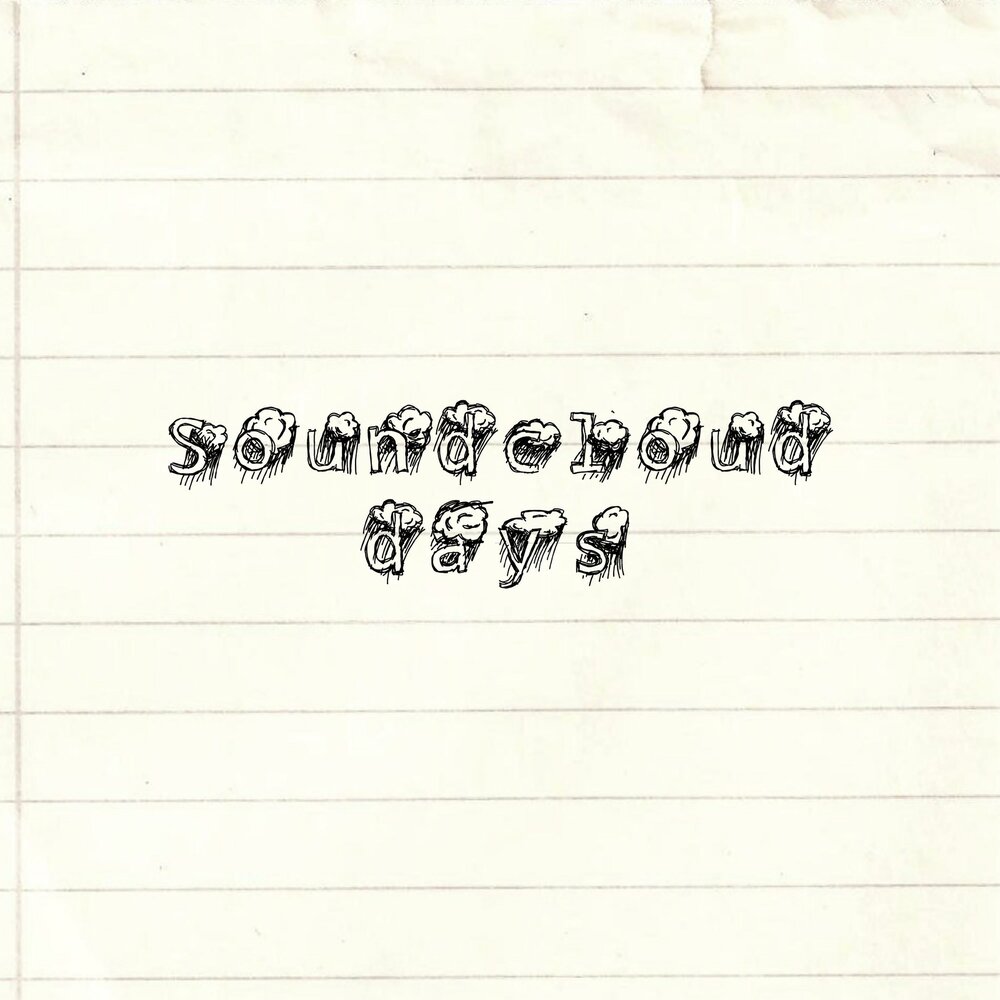 soundcloud
days